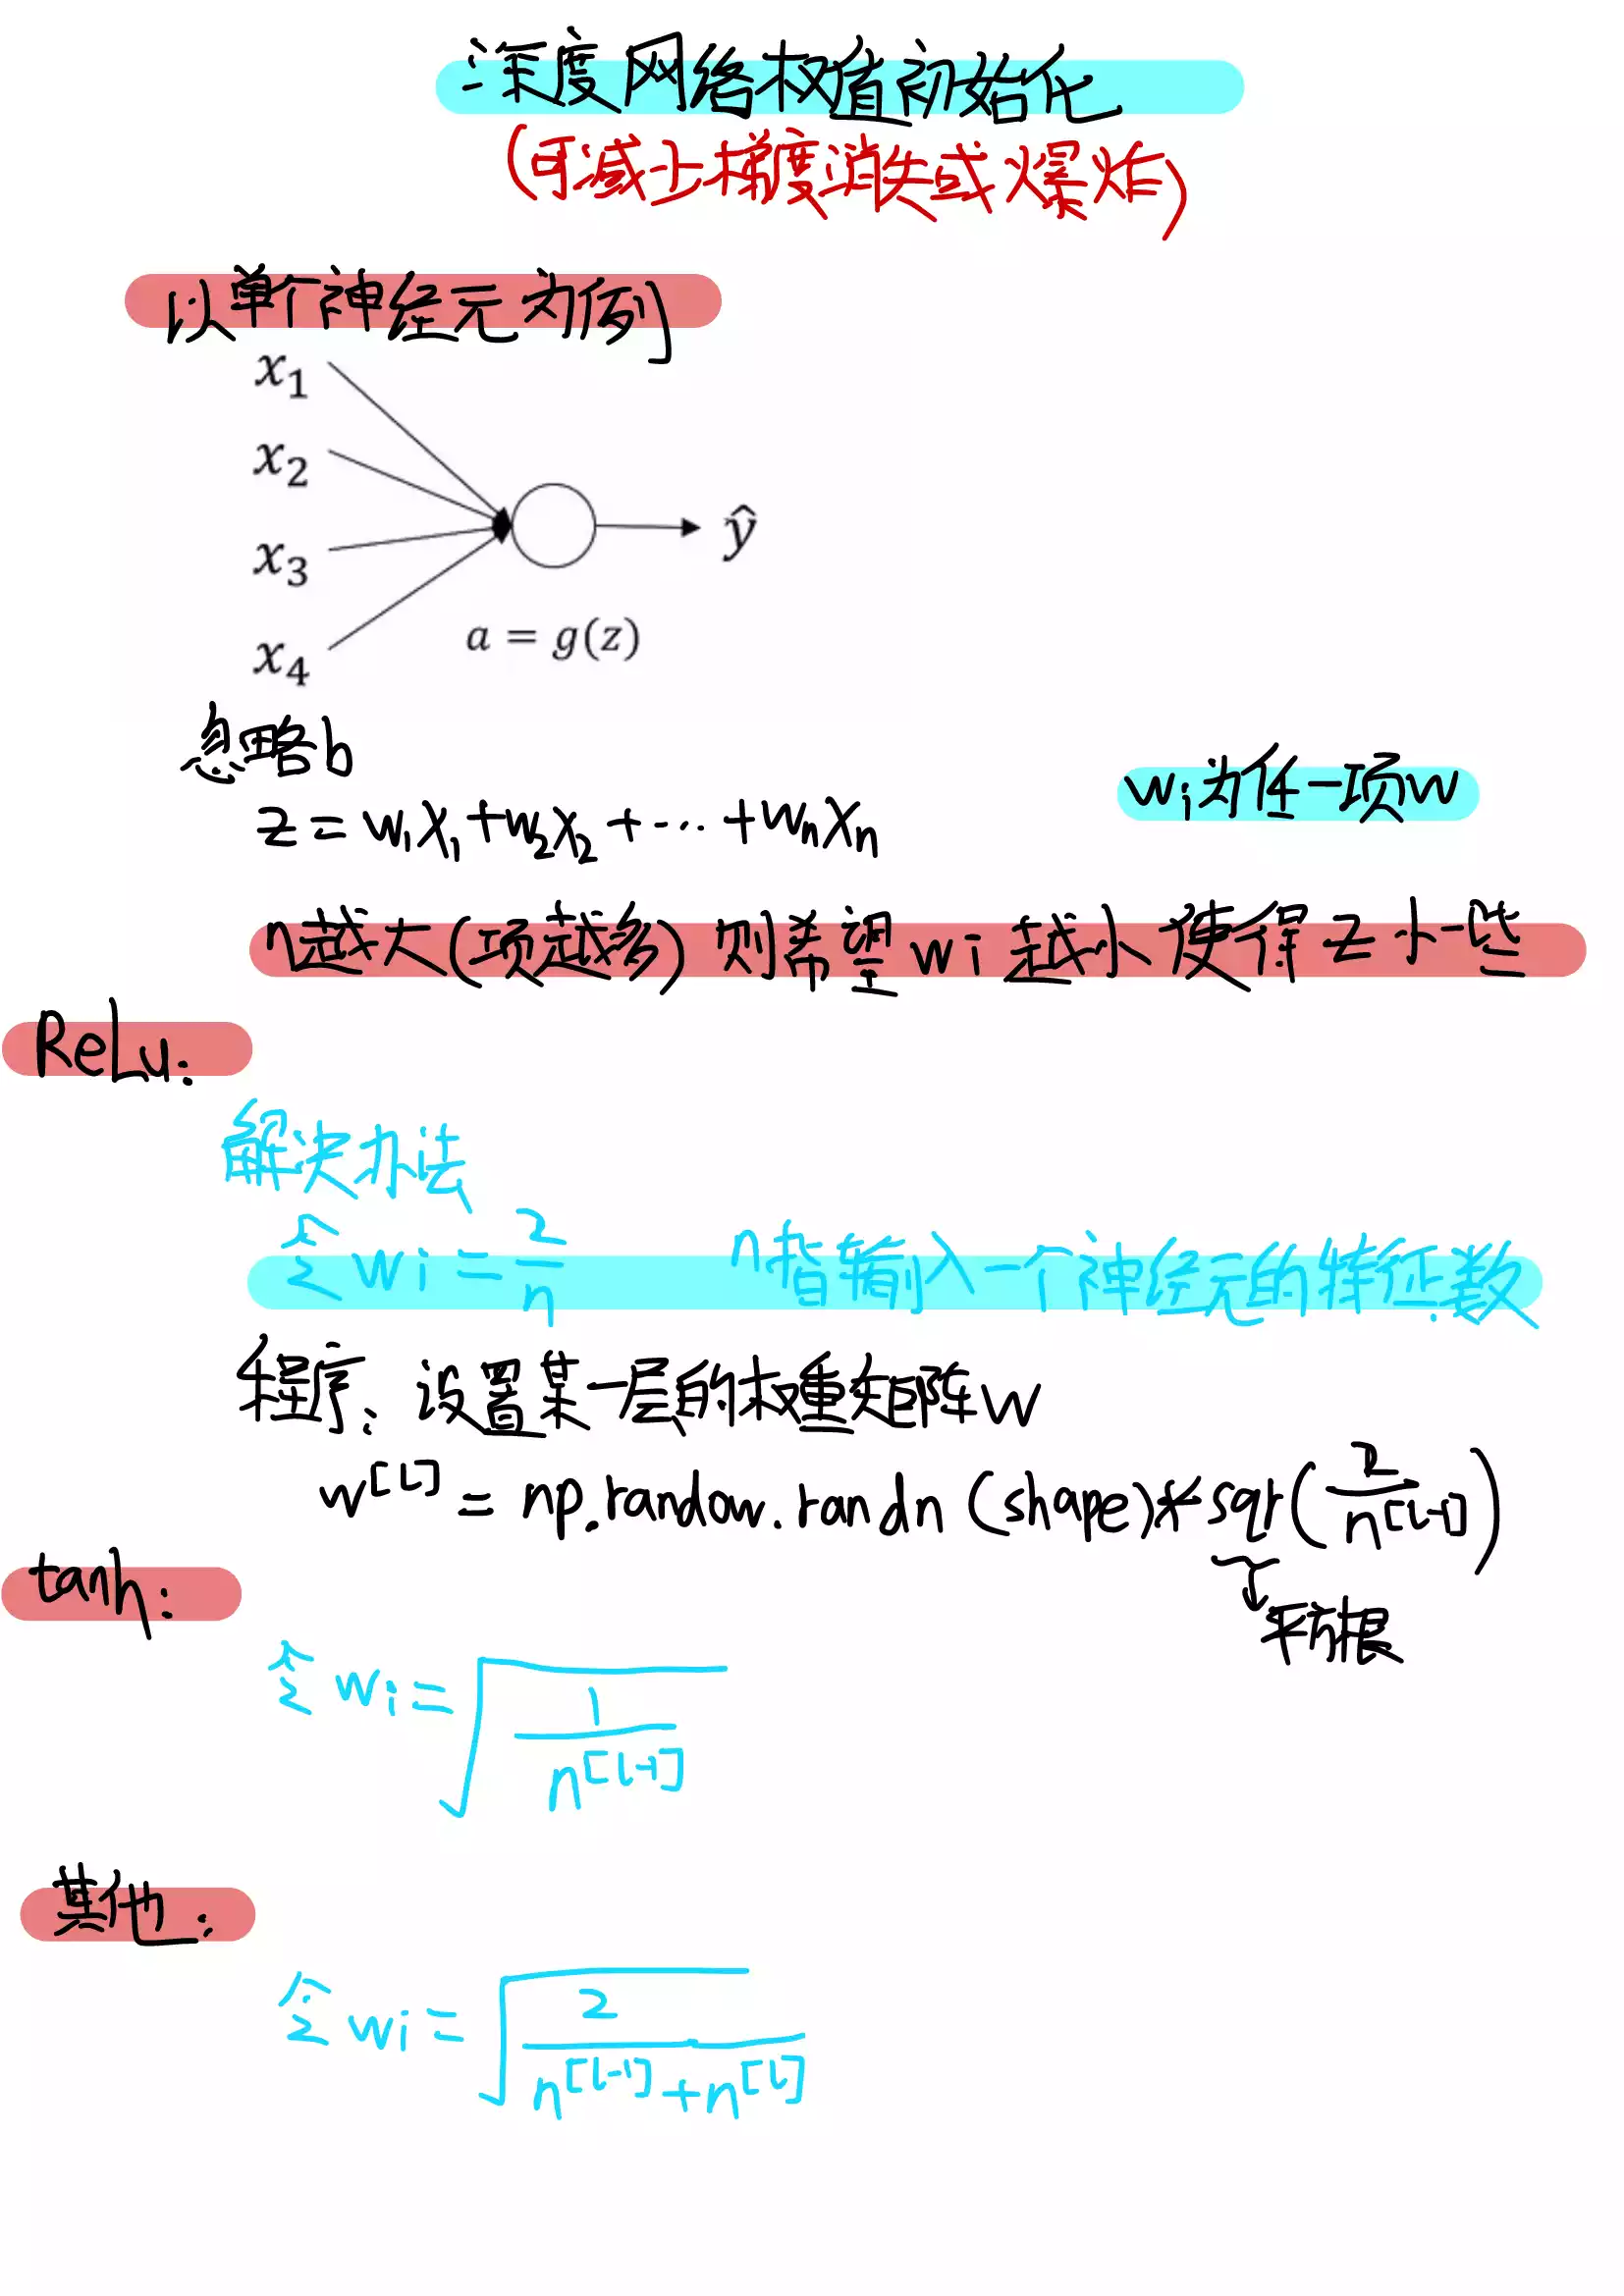 深度网络权值初始化
(可减少梯度消失或爆炸)
以单个神经元为例
x₁
x₂
x₃
x₄
ŷ
a = g(z)
忽略b
z = w₁x₁+w₂x₂+⋯+wₙxₙ
wᵢ为任一项w
n越大(项越多)则希望wi越小使得z小一些
ReLu:
解决办法
令wi=2/n n指输入一个神经元的特征数
程序: 设置某一层的权重矩阵w
w^[l] = np.randow.randn(shape)*sqr(2/n^[l-1])
平方根
tanh:
令wi=√(1/n^[l-1])
其他:
令wi=√(2/(n^[l-1]+n^[l]))